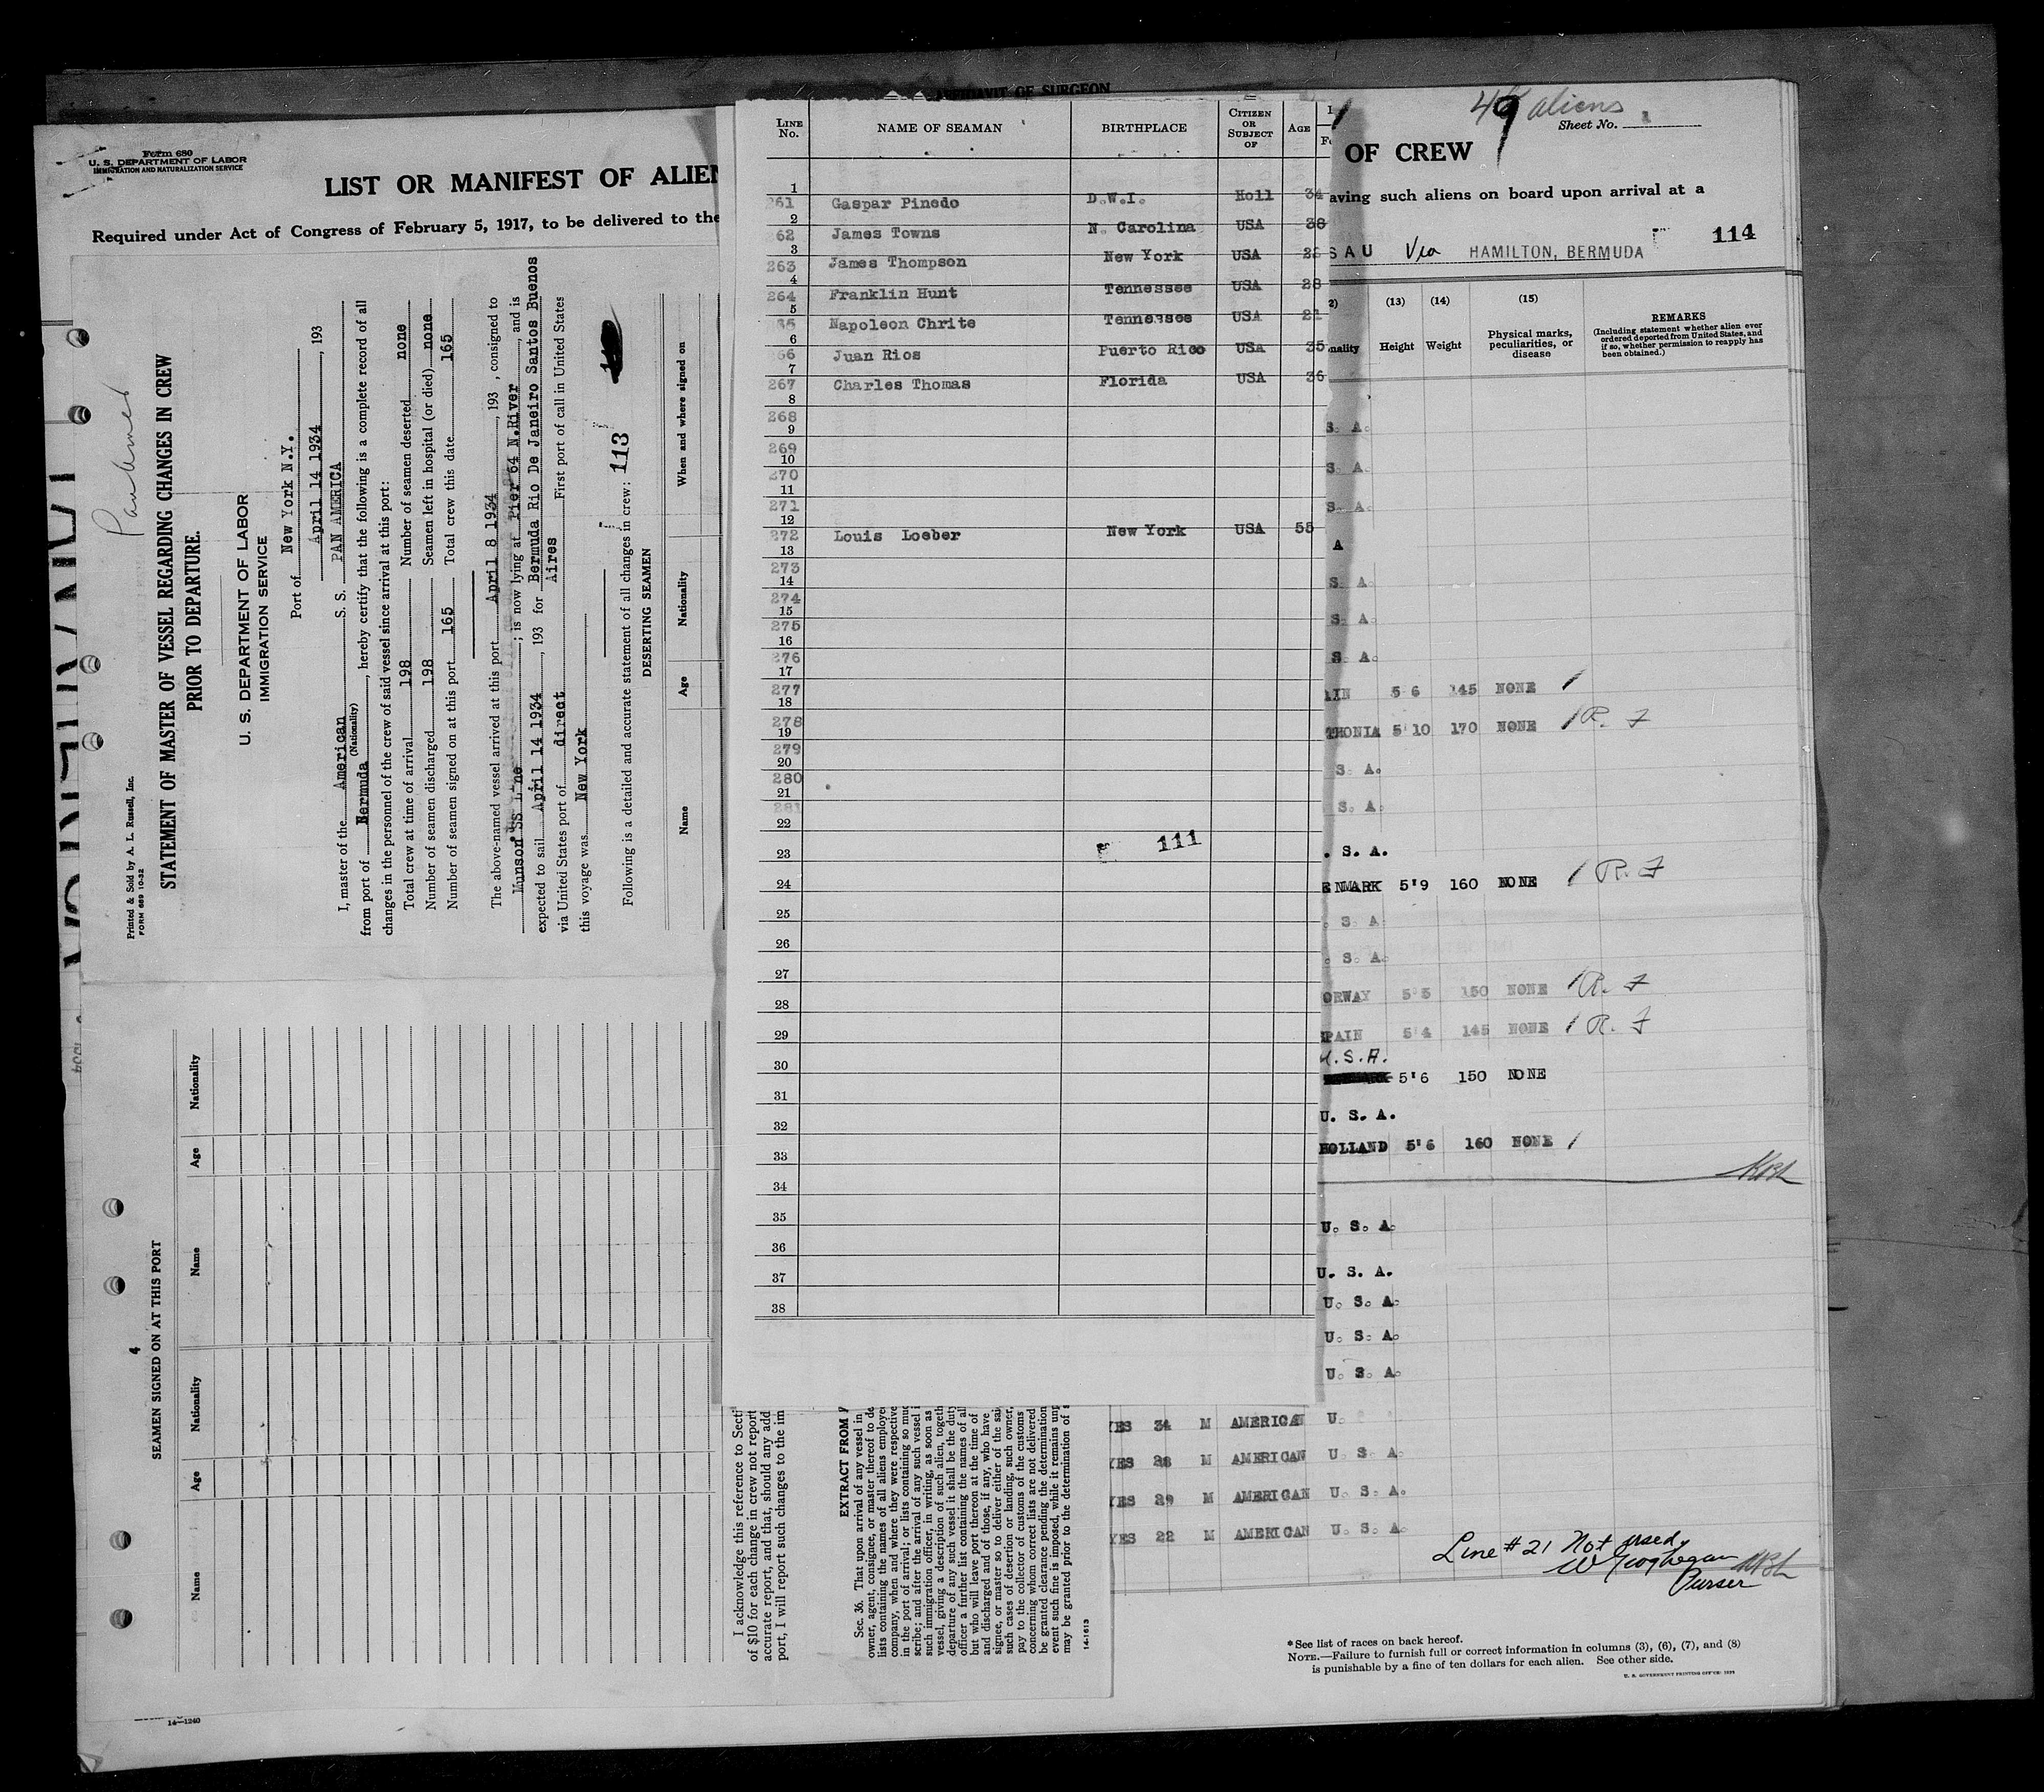 AFFIDAVIT OF SURGEON
Form 680
U. S. DEPARTMENT OF LABOR
IMMIGRATION AND NATURALIZATION SERVICE
LIST OR MANIFEST OF ALIEN
Required under Act of Congress of February 5, 1917, to be delivered to the
Printed & Sold by A. L. Russell, Inc.
FORM 689 10-32
STATEMENT OF MASTER OF VESSEL REGARDING CHANGES IN CREW
PRIOR TO DEPARTURE.
U. S. DEPARTMENT OF LABOR
IMMIGRATION SERVICE
Port of New York N.Y.
April 14 1934, 193
I, master of the American S. S. PAN AMERICA
(Nationality)
from port of Bermuda, hereby certify that the following is a complete record of all
changes in the personnel of the crew of said vessel since arrival at this port:
Total crew at time of arrival 198 Number of seamen deserted none
Number of seamen discharged 198 Seamen left in hospital (or died) none
Number of seamen signed on at this port 165 Total crew this date 165
The above-named vessel arrived at this port April 8 1934, 193 , consigned to
Munson SS Line; is now lying at Pier 64 N.River, and is
expected to sail April 14 1934, 193 for Bermuda Rio De Janeiro Santos Buenos
Aires
via United States port of direct First port of call in United States
this voyage was New York
Following is a detailed and accurate statement of all changes in crew: 113
DESERTING SEAMEN
Name Age Nationality When and where signed on
4
SEAMEN SIGNED ON AT THIS PORT
Name Age Nationality Name Age Nationality
14-1240
LINE No. NAME OF SEAMAN BIRTHPLACE CITIZEN OR SUBJECT OF AGE
1
261 Gaspar Pinedo D.W.I. Holl 34
2
262 James Towns N. Carolina USA 38
3
263 James Thompson New York USA
4
264 Franklin Hunt Tennessee USA 28
5
Napoleon Chrite Tennessee USA 21
6
Juan Rios Puerto Rico USA 35
7
267 Charles Thomas Florida USA 36
8
268
9
269
10
270
11
271
12
272 Louis Loeber New York USA 55
13
273
14
274
15
275
16
276
17
277
18
278
19
279
20
280
21
281
22
23 111
24
25
26
27
28
29
30
31
32
33
34
35
36
37
38
I acknowledge this reference to Secti
of $10 for each change in crew not report
accurate report, and that, should any add
port, I will report such changes to the im
EXTRACT FROM
Sec. 36. That upon arrival of any vessel in
owner, agent, consignee, or master thereof to de
lists containing the names of all aliens employe
company, when and where they were respective
in the port of arrival; or lists containing so muc
scribe; and after the arrival of any such vessel i
such immigration officer, in writing, as soon as
vessel, giving a description of such alien, togeth
departure of any such vessel it shall be the duty
officer a further list containing the names of all
but who will leave port thereon at the time of
and discharged and of those, if any, who have
signee, or master so to deliver either of the said
such cases of desertion or landing, such owner,
pay to the collector of customs of the customs
concerning whom correct lists are not delivered
be granted clearance pending the determination
event such fine is imposed, while it remains unp
may be granted prior to the determination of s
14-1613
49 aliens
Sheet No. 1
OF CREW
aving such aliens on board upon arrival at a
SAU Via HAMILTON, BERMUDA 114
(13) (14) (15)
nality Height Weight Physical marks, peculiarities, or disease
REMARKS
(Including statement whether alien ever
ordered deported from United States, and
if so, whether permission to reapply has
been obtained.)
S. A.
S. A.
S. A.
A
S. A.
S. A.
S. A.
AIN 5 6 145 NONE 1
THONIA 5'10 170 NONE 1 R. F
S. A.
S. A.
. S. A.
ENMARK 5'9 160 NONE 1 R. F
. S. A
. S. A.
ORWAY 5'5 150 NONE 1 R. F
PAIN 5'4 145 NONE 1 R. F
U.S.A.
5'6 150 NONE
U. S. A.
HOLLAND 5'6 160 NONE 1
U. S. A.
U. S. A.
U. S. A.
U. S. A.
U. S. A.
YES 34 M AMERICAN U.
YES 28 M AMERICAN U. S. A.
YES 29 M AMERICAN U. S. A.
YES 22 M AMERICAN U. S. A.
Line # 21 Not used
W Geoghegan
Purser
*See list of races on back hereof.
NOTE.—Failure to furnish full or correct information in columns (3), (6), (7), and (8)
is punishable by a fine of ten dollars for each alien. See other side.
U. S. GOVERNMENT PRINTING OFFICE: 1933